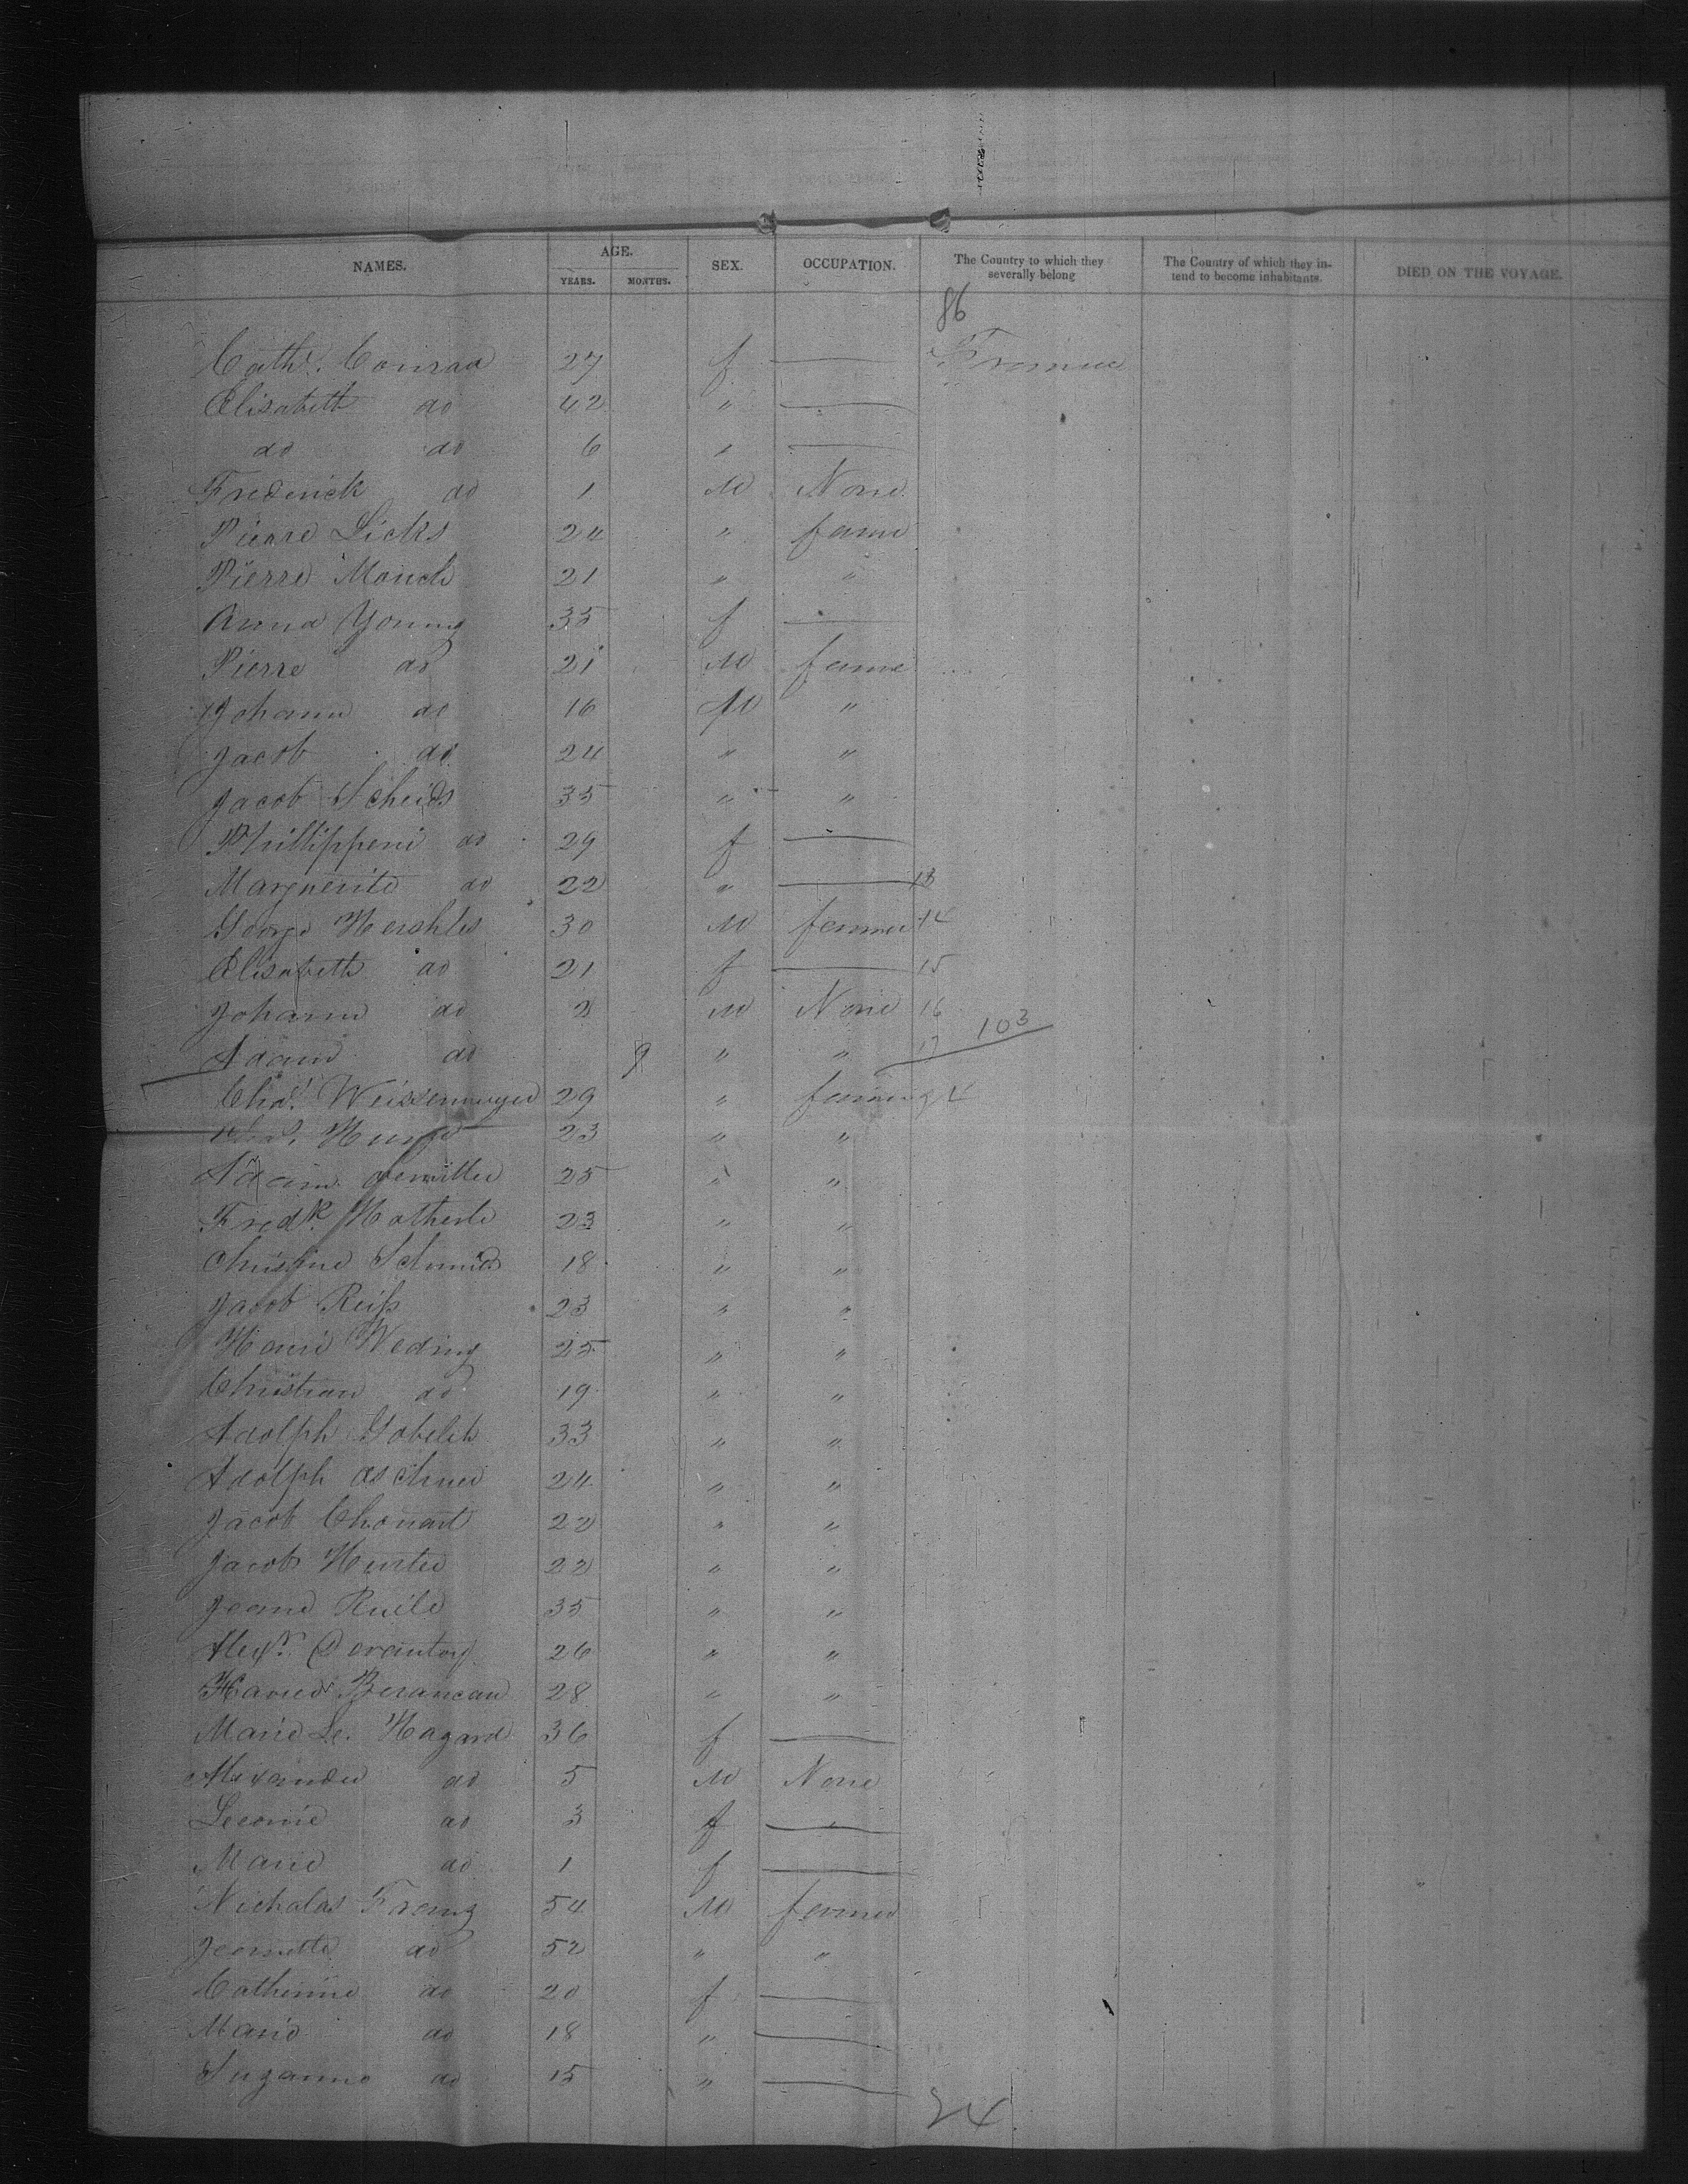 NAMES. AGE. YEARS. MONTHS. SEX. OCCUPATION. The Country to which they severally belong The Country of which they intend to become inhabitants. DIED ON THE VOYAGE.
86
Cath. Conrad 27 f — France
Elisabeth do 42 " —
do do 6 " —
Frederick do 1 M None
Pierre Licks 24 " farm
Pierre Mouch 21 " "
Anna Young 35 f —
Pierre do 21 M farme
Johann do 16 M "
Jacob do 24 " "
Jacob Scheids 35 " "
Phillippeni do 29 f —
Marguerite do 22 " — 13
George Hershler 30 M farmer 14
Elisabeth do 21 f — 15
Johann do 2 M None 16
Adam do 9 " " 17 103
Chas. Weissenmeyer 29 " farming 4
23 " "
Adam 25 " "
Fredk Hatherle 23 " "
Christine Schmid 18 " "
Jacob Reiss 23 " "
Henri Weding 25 " "
Christian do 19 " "
Adolph Gobelek 33 " "
Adolph 24 " "
Jacob Chonart 22 " "
Jacob Hurter 22 " "
Jeane Ruile 35 " "
Alexr. 26 " "
Berancan 28 " "
Marie Le. Hagard 36 f —
Alexander do 5 M None
Leconie do 3 f "
Marie do 1 f —
Nicholas Franz 54 M farmer
Jeanette do 52 " "
Catherine do 20 f —
Marie do 18 " —
Suzanne do 15 " —
24